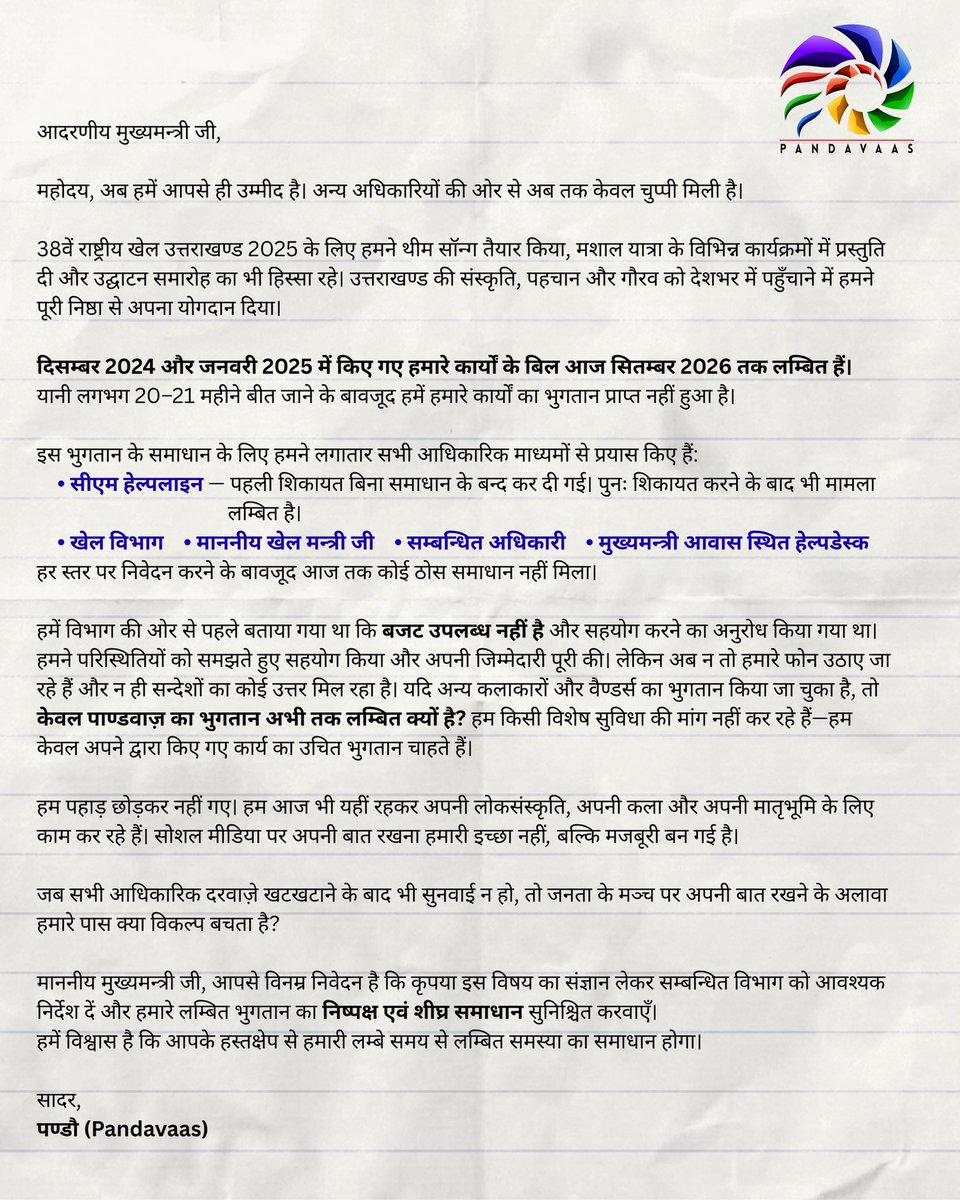 PANDAVAAS
आदरणीय मुख्यमन्त्री जी,
महोदय, अब हमें आपसे ही उम्मीद है। अन्य अधिकारियों की ओर से अब तक केवल चुप्पी मिली है।
38वें राष्ट्रीय खेल उत्तराखण्ड 2025 के लिए हमने थीम सॉन्ग तैयार किया, मशाल यात्रा के विभिन्न कार्यक्रमों में प्रस्तुति
दी और उद्घाटन समारोह का भी हिस्सा रहे। उत्तराखण्ड की संस्कृति, पहचान और गौरव को देशभर में पहुँचाने में हमने
पूरी निष्ठा से अपना योगदान दिया।
दिसम्बर 2024 और जनवरी 2025 में किए गए हमारे कार्यों के बिल आज सितम्बर 2026 तक लम्बित हैं।
यानी लगभग 20–21 महीने बीत जाने के बावजूद हमें हमारे कार्यों का भुगतान प्राप्त नहीं हुआ है।
इस भुगतान के समाधान के लिए हमने लगातार सभी आधिकारिक माध्यमों से प्रयास किए हैं:
• सीएम हेल्पलाइन — पहली शिकायत बिना समाधान के बन्द कर दी गई। पुनः शिकायत करने के बाद भी मामला
लम्बित है।
• खेल विभाग • माननीय खेल मन्त्री जी • सम्बन्धित अधिकारी • मुख्यमन्त्री आवास स्थित हेल्पडेस्क
हर स्तर पर निवेदन करने के बावजूद आज तक कोई ठोस समाधान नहीं मिला।
हमें विभाग की ओर से पहले बताया गया था कि बजट उपलब्ध नहीं है और सहयोग करने का अनुरोध किया गया था।
हमने परिस्थितियों को समझते हुए सहयोग किया और अपनी जिम्मेदारी पूरी की। लेकिन अब न तो हमारे फोन उठाए जा
रहे हैं और न ही सन्देशों का कोई उत्तर मिल रहा है। यदि अन्य कलाकारों और वैण्डर्स का भुगतान किया जा चुका है, तो
केवल पाण्डवाज़ का भुगतान अभी तक लम्बित क्यों है? हम किसी विशेष सुविधा की मांग नहीं कर रहे हैं—हम
केवल अपने द्वारा किए गए कार्य का उचित भुगतान चाहते हैं।
हम पहाड़ छोड़कर नहीं गए। हम आज भी यहीं रहकर अपनी लोकसंस्कृति, अपनी कला और अपनी मातृभूमि के लिए
काम कर रहे हैं। सोशल मीडिया पर अपनी बात रखना हमारी इच्छा नहीं, बल्कि मजबूरी बन गई है।
जब सभी आधिकारिक दरवाज़े खटखटाने के बाद भी सुनवाई न हो, तो जनता के मञ्च पर अपनी बात रखने के अलावा
हमारे पास क्या विकल्प बचता है?
माननीय मुख्यमन्त्री जी, आपसे विनम्र निवेदन है कि कृपया इस विषय का संज्ञान लेकर सम्बन्धित विभाग को आवश्यक
निर्देश दें और हमारे लम्बित भुगतान का निष्पक्ष एवं शीघ्र समाधान सुनिश्चित करवाएँ।
हमें विश्वास है कि आपके हस्तक्षेप से हमारी लम्बे समय से लम्बित समस्या का समाधान होगा।
सादर,
पण्डौ (Pandavaas)